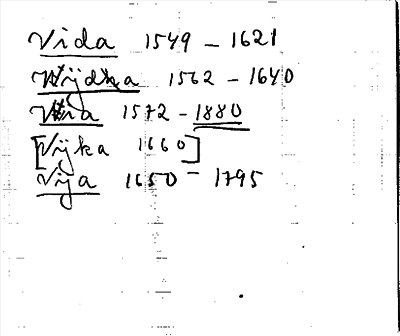 Vida 1549 - 1621
Wijdka 1562 - 1640
Via 1572 - 1880
[Vijka 1660]
Vija 1650 - 1795